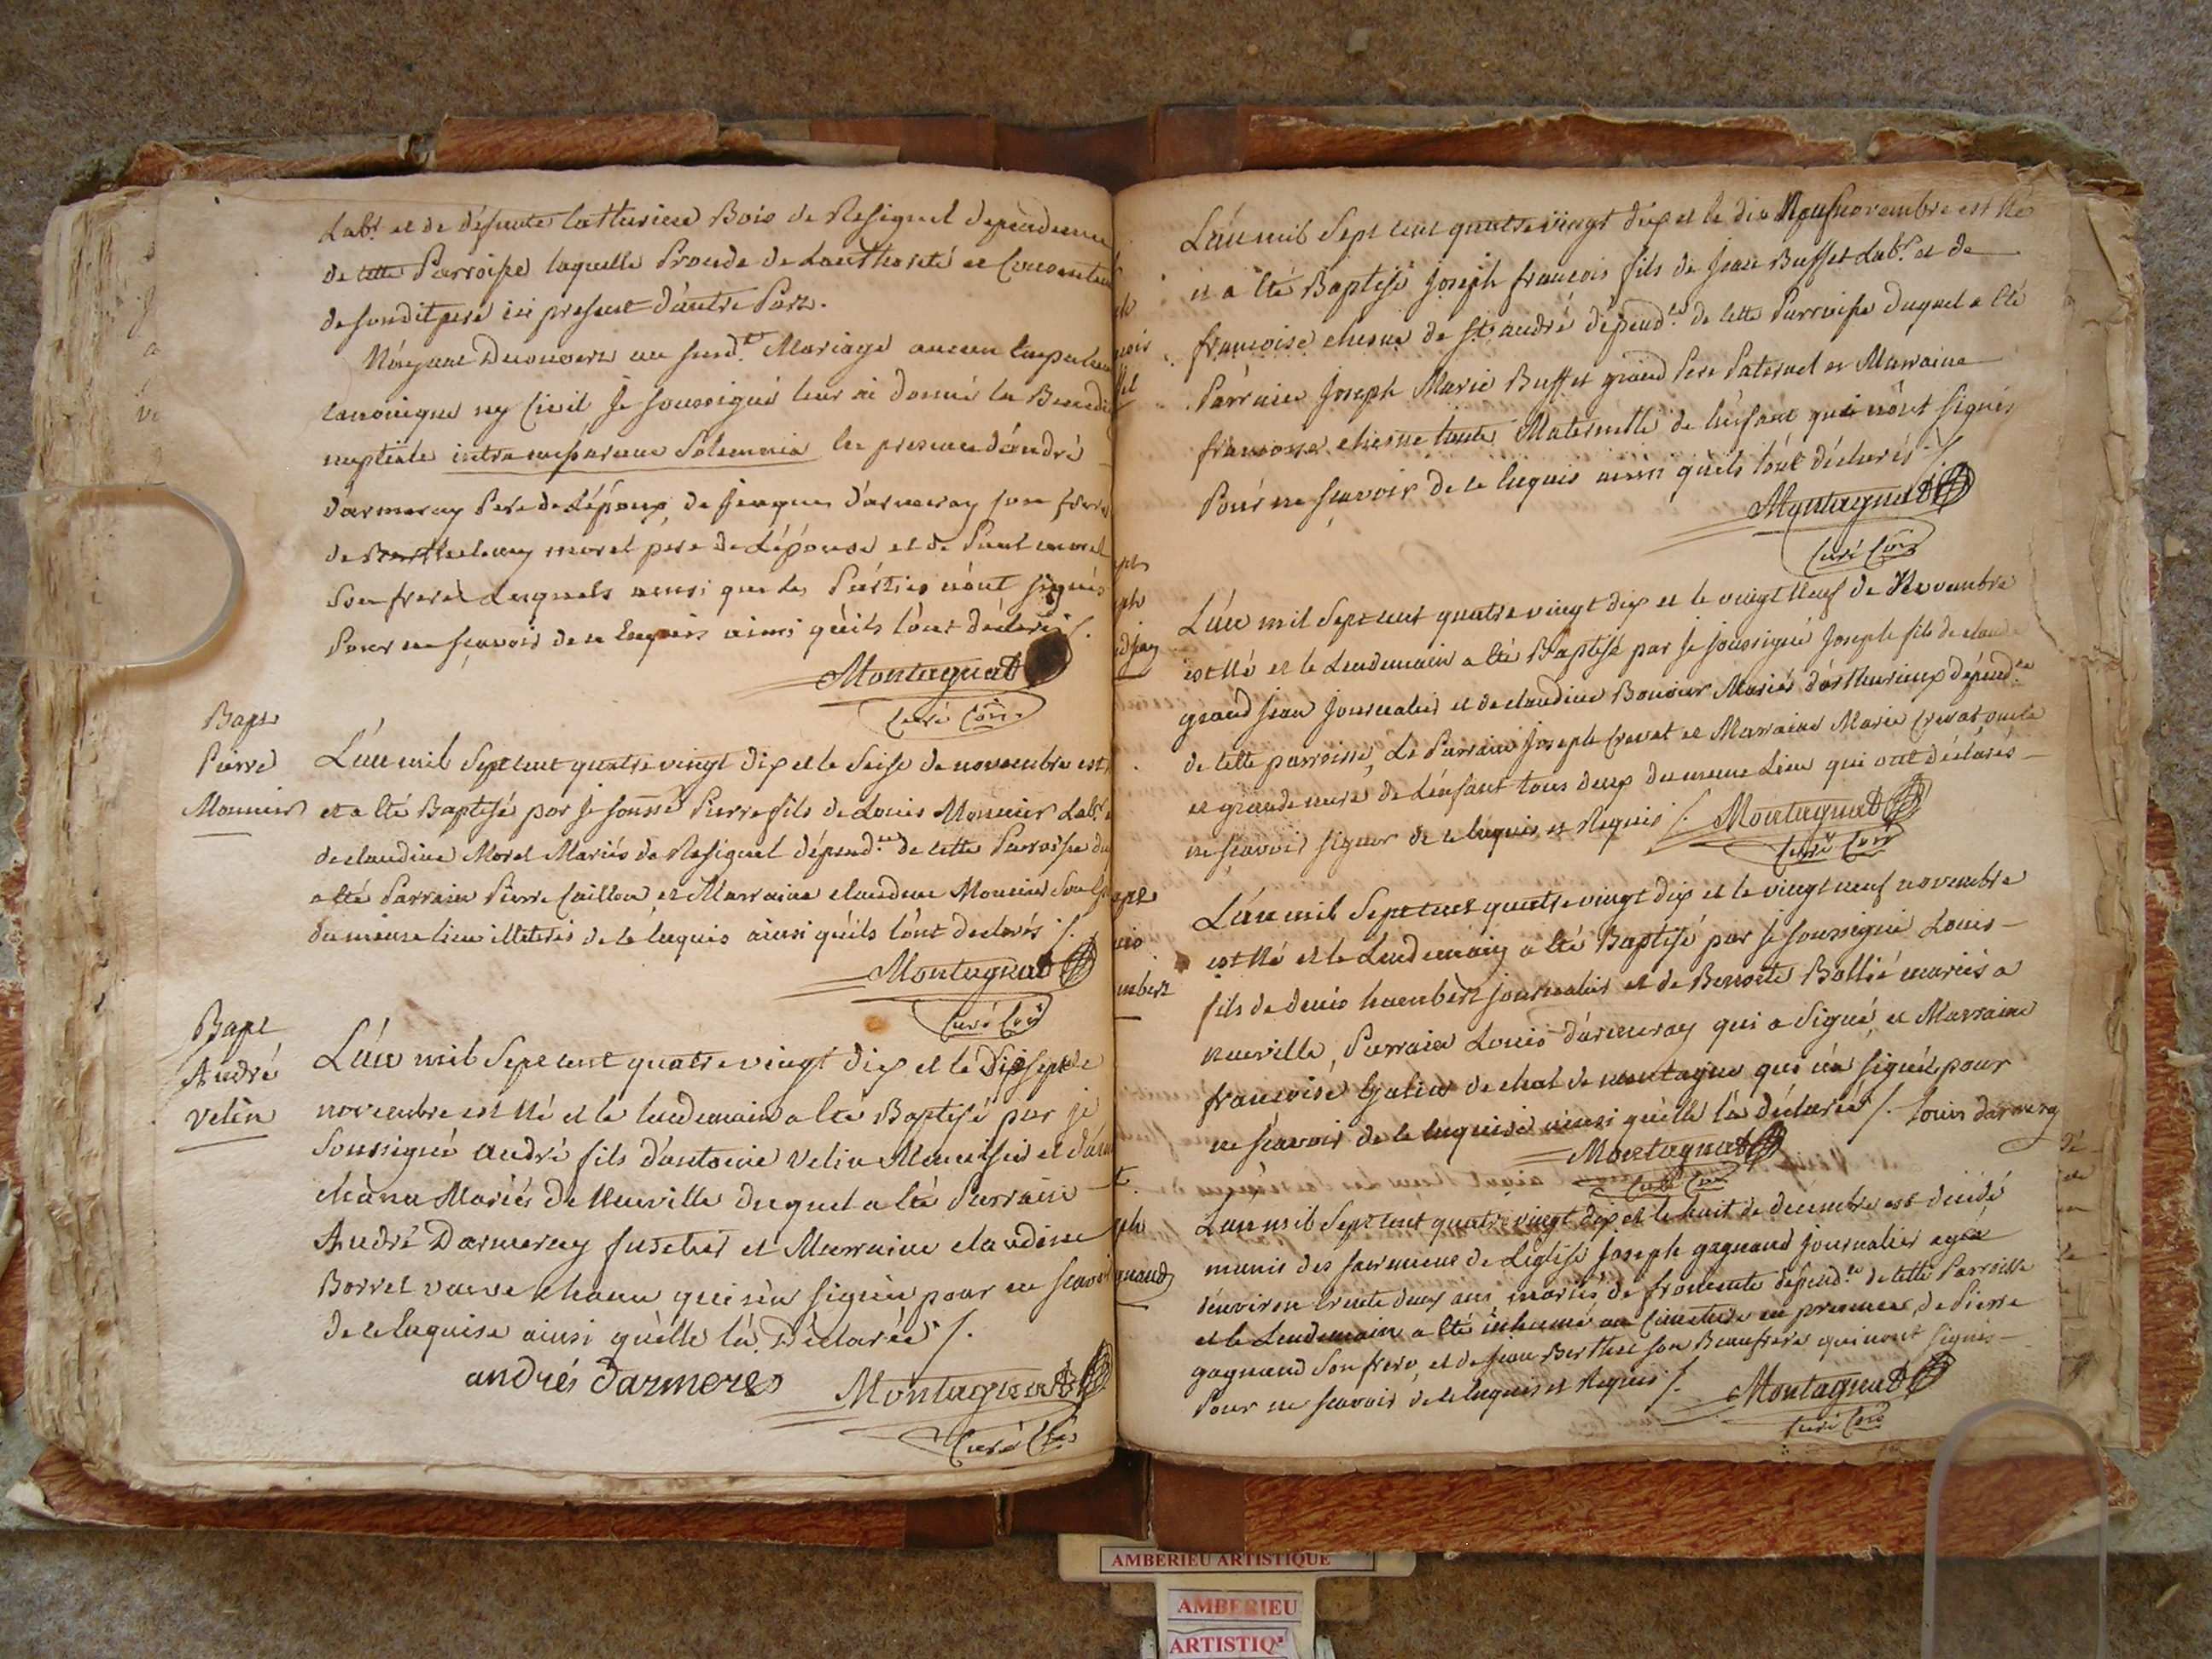 Labr et de défunte Catherine Bois de Resignel dependance
de cette Parroisse laquelle Procède de Lauthorité et Consentem
de sondit pere ici present d'autre Part.
N'ayant Decouvert au susdt Mariage aucun Empechem
canonique ny Civil Je soussigné leur ai donné la Benedi
nuptiale intra missarum Solemnia en presence d'andré
darmeray Pere de L'époux, de jacques d'armeray son frere
de Barthelemy morel pere de L'épouse et de Paul morel
Son frere Lesquels ainsi que les Parties n'ont signés
Pour ne sçavoir de ce enquis ainsi qu'ils l'ont déclaré /.
Montagnat
Curé
Bapt
Pierre
Monnier
L'an mil Sept cent quatre vingt dix et le Seise de novembre est
et a été Baptisé par je sousé Pierre fils de Louis Monnier Labr
de claudine Morel Mariés de Resignel dépendce de cette Parroisse du
a été Parrain Pierre Caillou et Marraine claudine Monnier
du meme lieu illiterés de ce enquis ainsi qu'ils l'ont declarés /.
Montagnat
Curé
Bapt
André
velin
L'an mil Sept cent quatre vingt dix et le Dixsept de
novembre est Né et le lendemain a été Baptisé par je
Soussigné andré fils d'antoine Velin Meunisier et d'a
chànu Mariés de Nueville duquel a été Parrain
André Darmeray fusetier et Marraine claudine
Borrel veuve chanu qui n'a signée pour ne scavoir
de ce enquise ainsi qu'elle l'a Déclarée /.
andrés darmeres
Montagnat
Curé
L'an mil Sept cent quatre vingt dix et le dix Neuf novembre est Né
et a été Baptisé Joseph francois fils de Jean Buffet Labr et de
francoise chesne de St andré dépendce de cette Parroisse duquel a été
Parrain Joseph Marie Buffet grand Pere Paternel et Marraine
francoise chesne tante Maternelle de l'enfant qui n'ont signés
Pour ne scavoir de ce enquis ainsi qu'ils l'ont déclarés /.
Montagnat
Curé
L'an mil Sept cent quatre vingt dix et le vingt Neuf de Novembre
est Né et le Lendemain a été Baptisé par je soussigné Joseph fils de claude
grand jean journalier et de claudine Bouvier Mariés d'arthurieux dépendce
de cette parroisse, Le Parrain Joseph Crevat et Marraine Marie Crevat oncle
et grande mere de L'enfant tous deux du meme Lieu qui ont déclarés
ne scavoir signer de ce enquis et Requis /. Montagnat
Curé
L'an mil Sept cent quatre vingt dix et le vingt neuf novembre
est Né et le Lendemain a été Baptisé par je soussigné Louis
fils de denis humbert journalier et de Benoite Bollié mariés a
nueville, Parrain Louis d'armeray qui a Signé et Marraine
francoise Galin de chat de montagne qui n'a signée pour
ne scavoir de ce enquise ainsi qu'elle l'a déclarée /. Louis darmeray
Montagnat
Curé
L'an mil Sept cent quatre vingt dix et le huit de decembre est decedé
munis des sacremens de L'église Joseph gagnand journalier agé
d'environ trente deux ans mariés de fromente dépendce de cette Parroisse
et le Lendemain a été inhumé au Cimetiere en presence de Pierre
gagnand son frere, et de jean Berthet son Beaufrere qui nont signés
Pour ne scavoir de ce enquis et Requis /. Montagnat
Curé
AMBERIEU ARTISTIQUE
AMBERIEU
ARTISTIQ